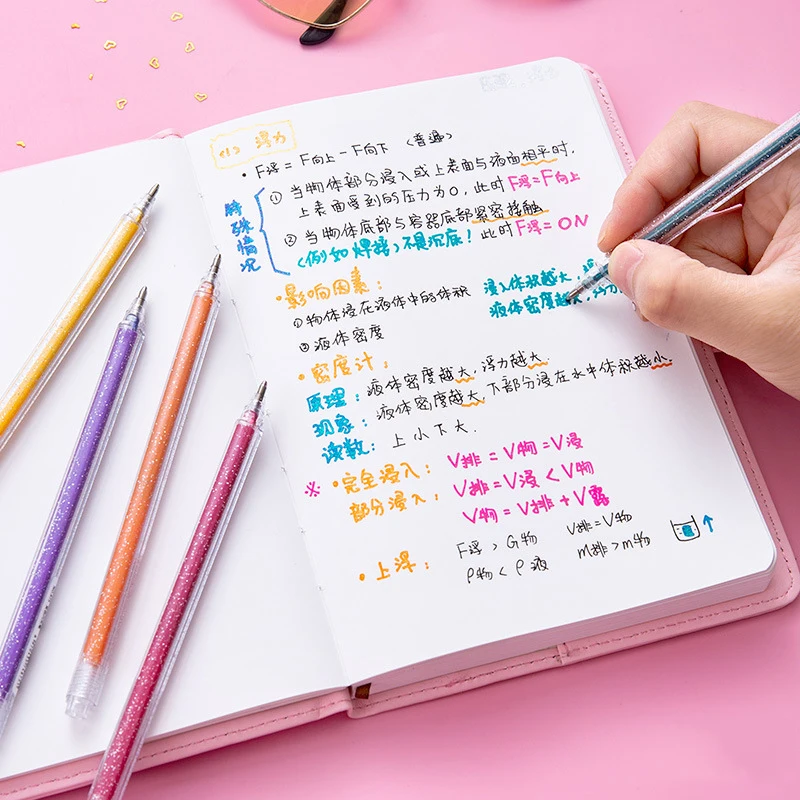 <1> 浮力
• F浮 = F向上 - F向下 (普遍)
特殊情况
① 当物体部分浸入或上表面与液面相平时,
上表面受到的压力为0, 此时 F浮=F向上
② 当物体底部与容器底部紧密接触
(例如焊接) 不是沉底! 此时 F浮= 0N
• 影响因素:
①物体浸在液体中的体积
②液体密度
浸入体积越大,
液体密度越大,
• 密度计:
原理: 液体密度越大, 浮力越大.
现象: 液体密度越大, 下部分浸在水中体积越小.
读数: 上小下大.
※ • 完全浸入: V排 = V物 = V浸
部分浸入: V排 = V浸 < V物
V物 = V排 + V露
• 上浮: F浮 > G物 V排 = V物
ρ物 < ρ液 m排 > m物